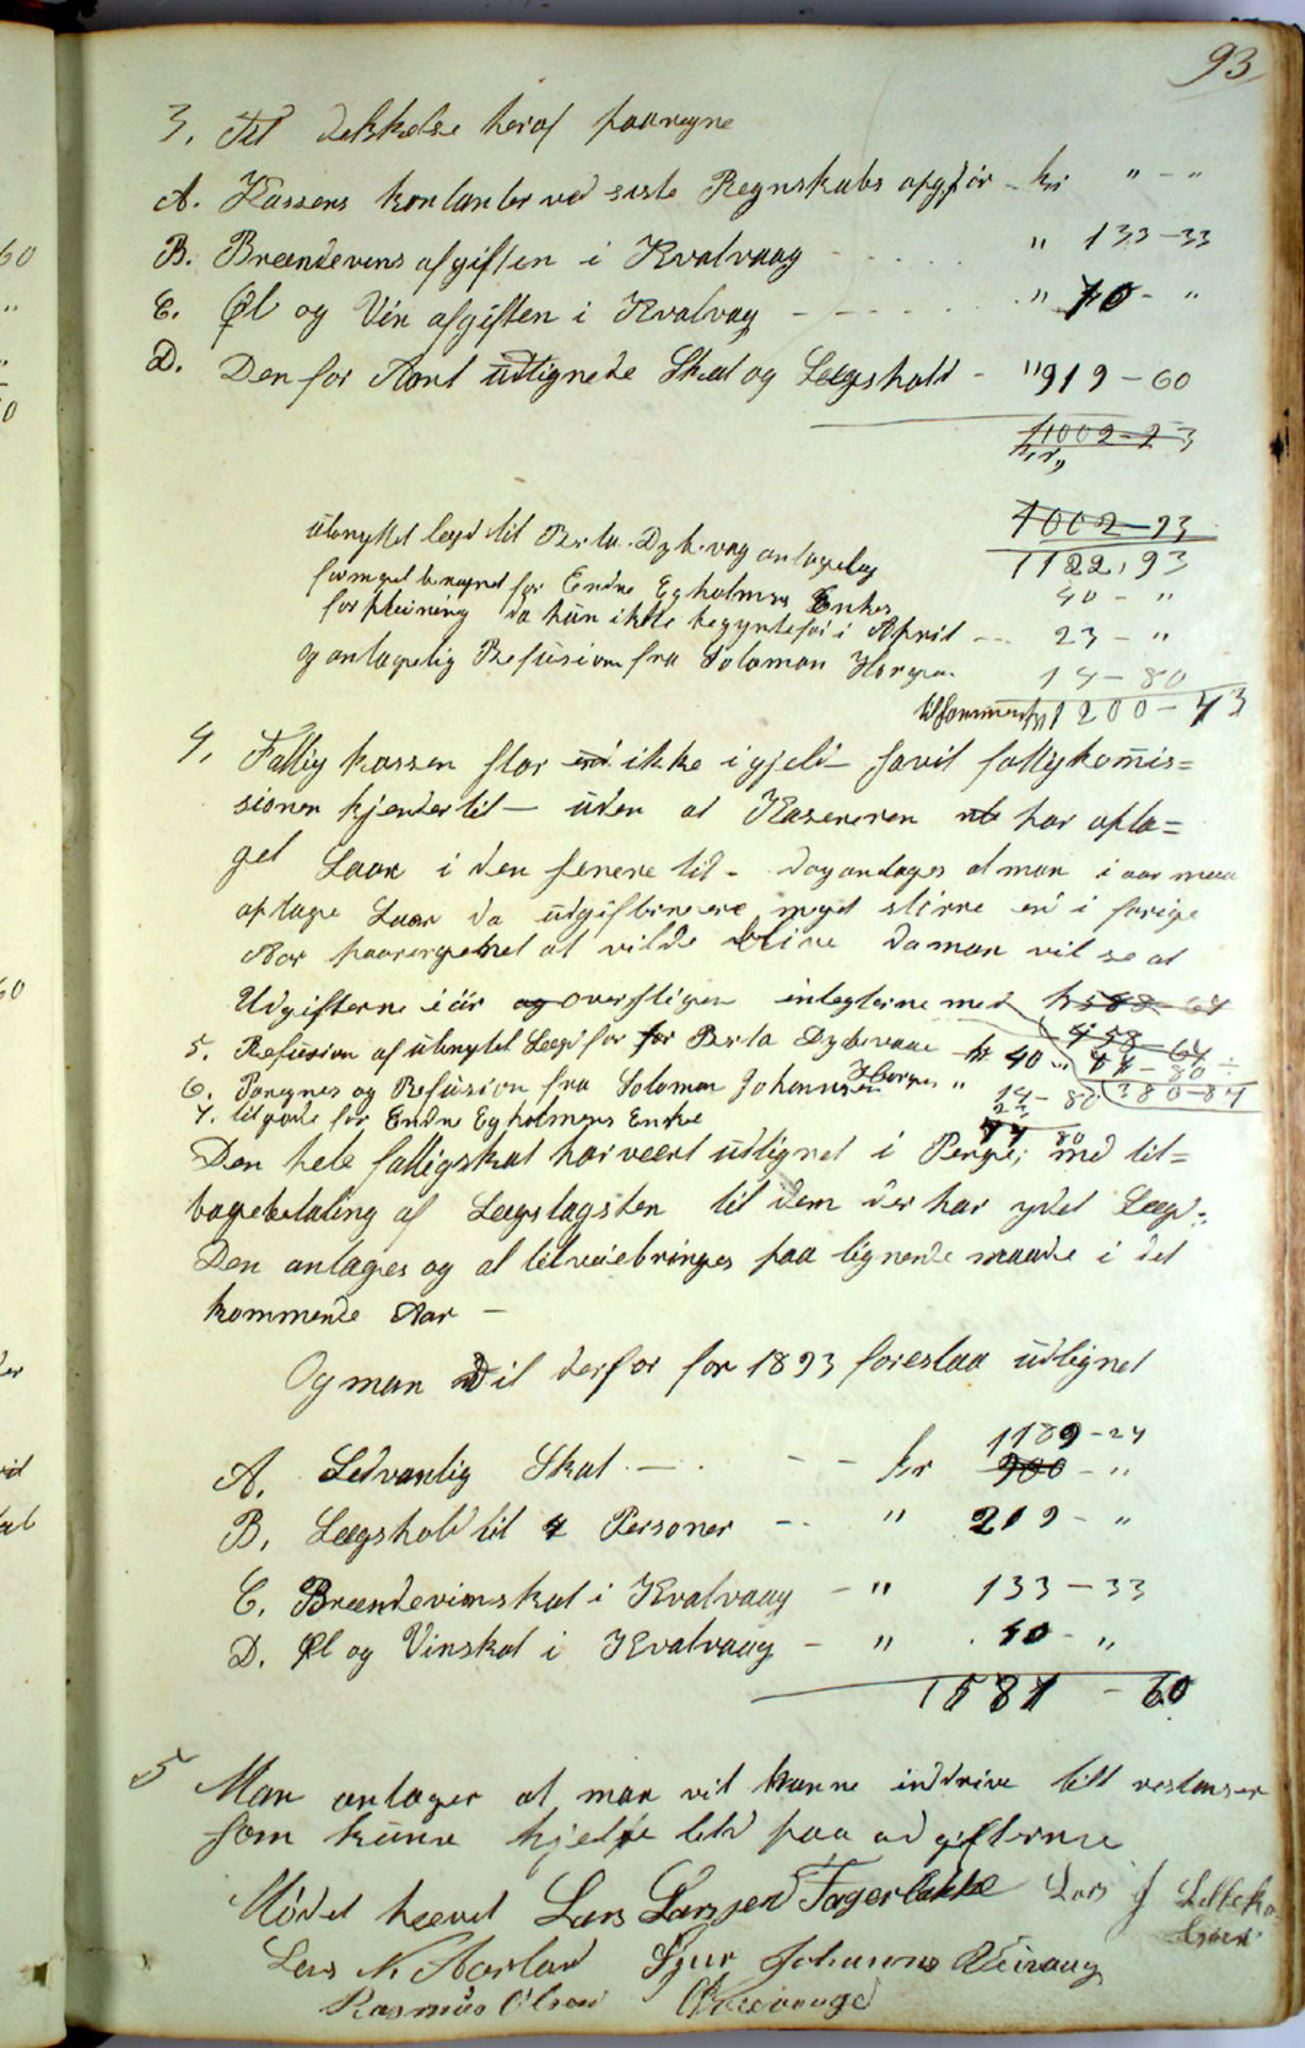 93
3, Til dekkelse heraf paaregne
A. Kassens kontanter ved siste Regnskabs opgjör - kr " - "
B. Brændevins afgiften i Kvalvaag - . . . . " 133-33
C. Øl og Vin afgiften i Kvalvag - - - . . . " 70 - "
D. Den for Aaret üdlignede Skat og Lægshold - " 919 - 60
11002-93
kr
1002-93
ubenyttet legd til Berta Dybevag antagelig 1122,93
for Endre Egholmens Enkes 40 - "
forpleining da hün ikke begynte før i April --- 23 - "
og antagelig Refüsion fra Solomon Horgen 14-80
tilsammen kr 1200-73
4, Fattig kassen star ikke i gjeld savit fattigkomis=
sionen kjender til - üden at Kasereren har opta=
get Laan i den senere tid - dog andages at man i aar maa
optage Laan da üdgifterne ere meget större end i forige
Aar paaregnet at vilde blive da man vil se at
Udgifterne i år og overstiger integterne med kr 588-67
458-67
5. Refüsion af übenytet Legd for for Berta Dybevaag kr 40 " 77-80 ÷
6. Paregnes og Refüsion fra Solomon Johannesen Horgen " 14-80 380-87
7. tilgode for Endre Egholmens Enke 23
77 80
Den hele fattigskat har veært üdlignet i Penge, med til=
bagebetaling af Lægstagsten til dem der har ydet Lægd.
Den antages og at tilveiebringes paa lignende maade i det
kommende Aar -
Og man vil derfor for 1893 foreslaa üdlignet
1189-27
A. Sedvanlig Skat - . - - kr 900 - "
B, Lægshold til 4 Personer - . " 219 - "
C. Brændevinskat i Kvalvaag - " 133-33
D. Øl og Vinskat i Kvalvaag - " . 40 - "
1581 - 60
5 Man antager at man vil kunne inddrive litt restanser
som künne hjelpe litt paa udgifterne
Mödet hævet Lars Larssen Fagerbakke Lars J
Lars N. Aarland Sjur Johannes
Rasmüs Olsen